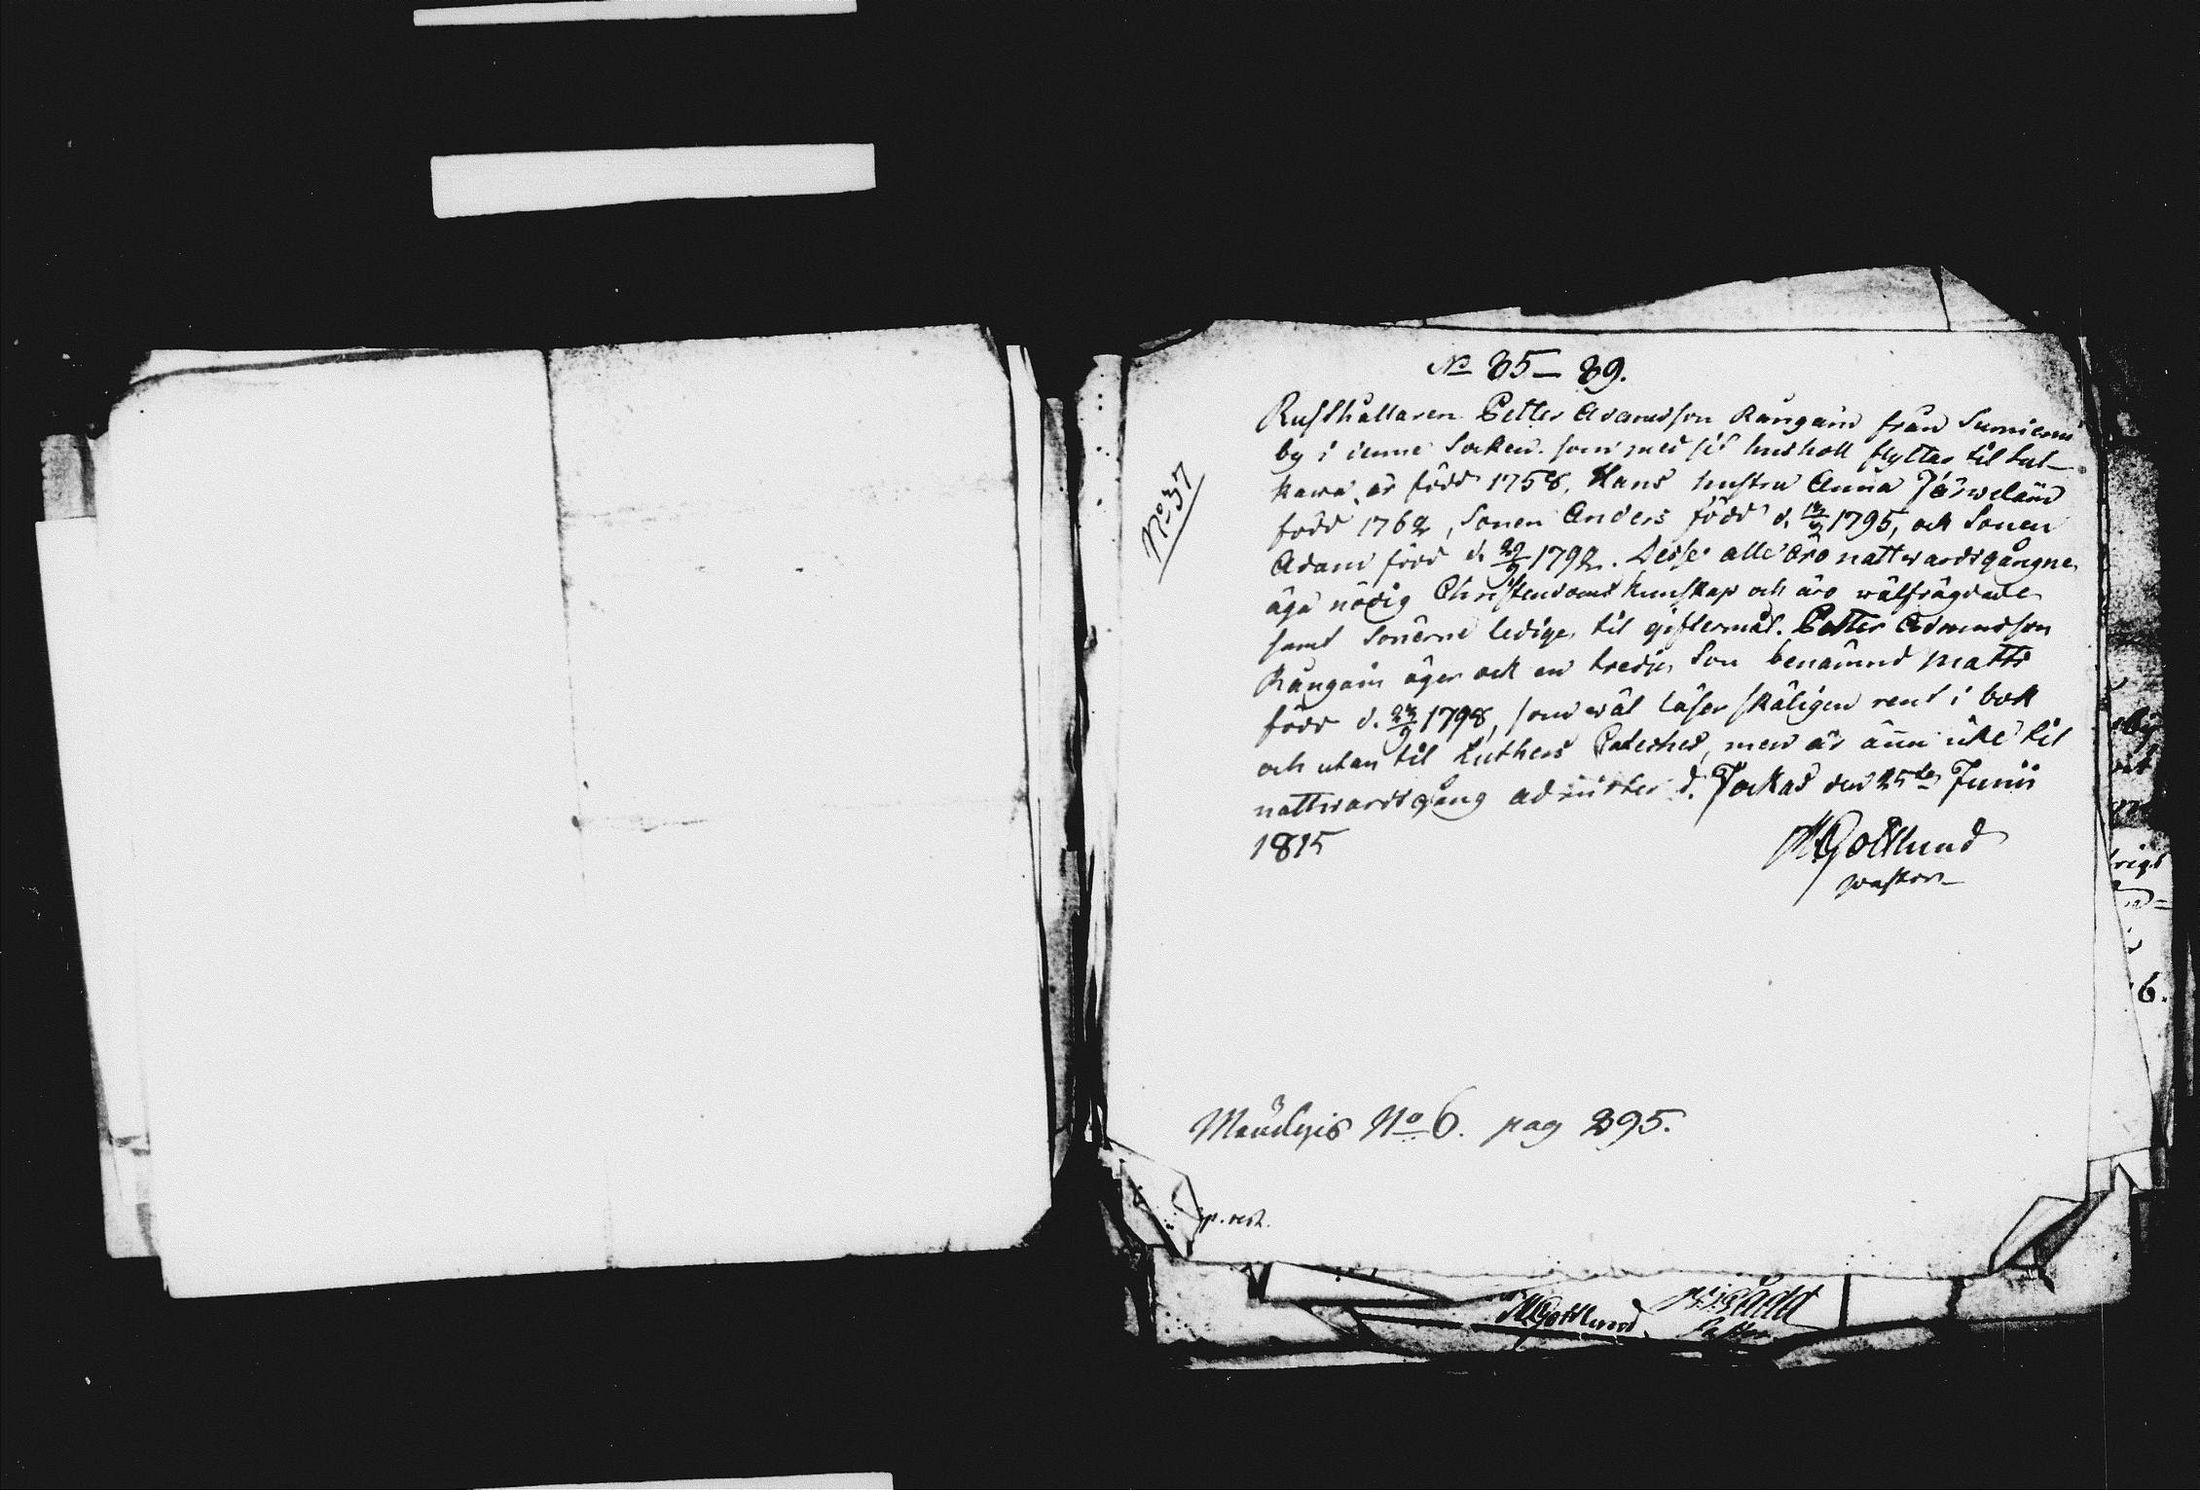 No 85 – 89.
Rusthållaren Petter Adamsson Kångain från Surniemi
by i denne Socken som med sit hushåll flyttar til Sul-
kava är född 1758, Hans hustru Anna Järveläin
född 1762, Sonen Anders född d. 1795, och Sonen
Adam född d. 29/9 1792. Desse alle äro nattwardsgångne
äga nödig Christendoms kunskap och äro wälfrägdade
samt Sönerne ledige til giftermål. Petter Adamsson
Kångain äger ock en tredje Son benämnd Matts
född d. 1798, som wäl läser skäligen rent i bok
och utan til Lutheri Cateches, men är ännu icke til
nattwardsgång admitterd. Jockas den 25te Junii
1815
M Gottlund
pastor
No 37
No 6. pag 295.
M Gottlund